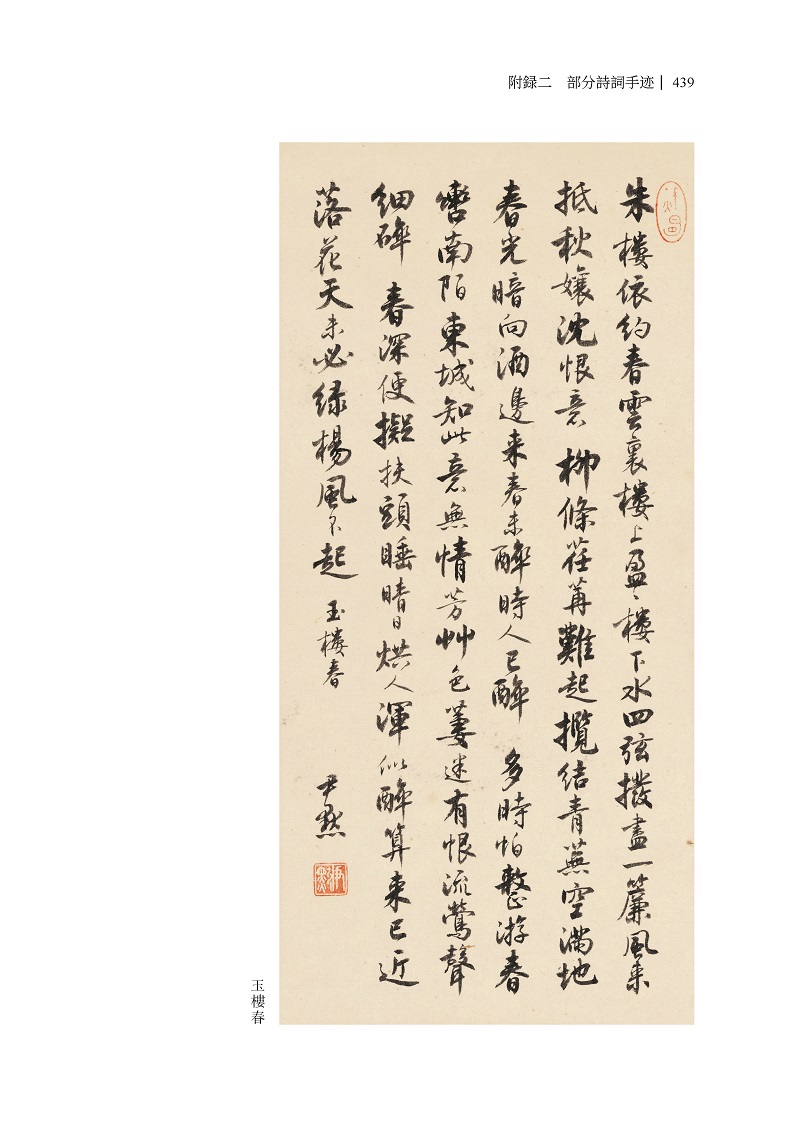 附録二　部分詩詞手迹｜ 439
朱樓依約春雲裏樓上盈〻樓下水四弦撥盡一簾風未
抵秋孃沈恨意　柳條荏苒難起攬結青蕪空滿地
春光暗向酒邊來春未醉時人已醉　多時怕整游春
轡南陌東城知此意無情芳艸色萋迷有恨流鶯聲
細碎　春深便擬扶頭睡晴日烘人渾似醉算來已近
落花天未必緑楊風不起　玉樓春
尹默
玉樓春